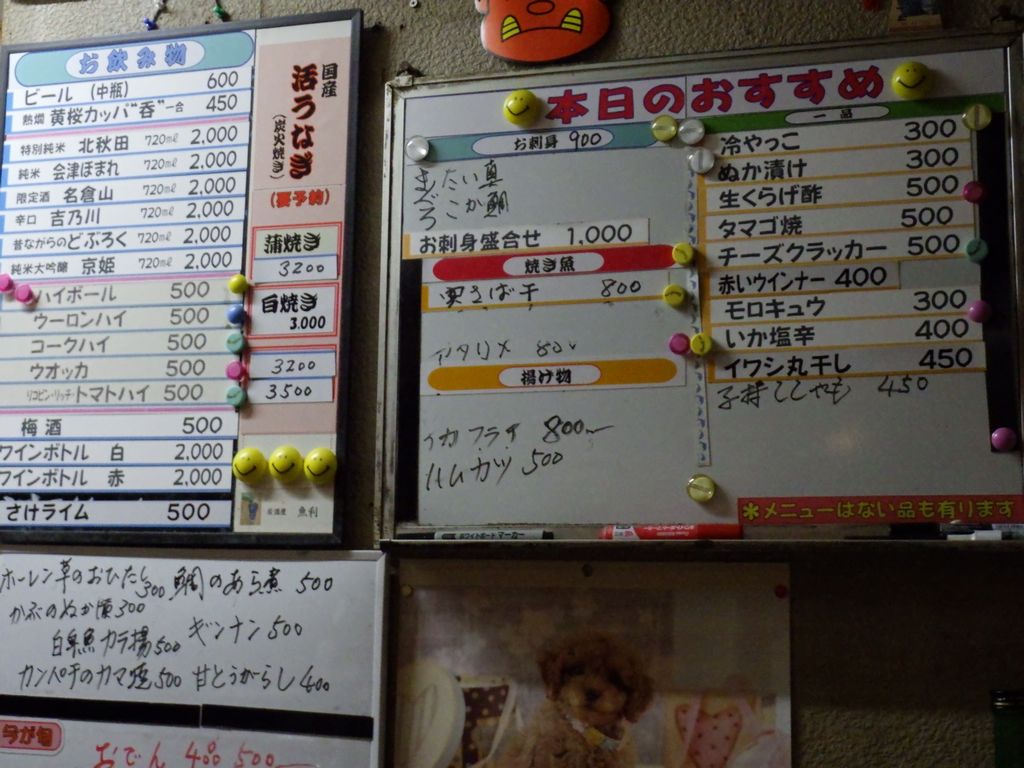 お飲み物
ビール (中瓶) 600
熱燗 黄桜カッパ“呑”一合 450
特別純米 北秋田 720mℓ 2,000
純米 会津ほまれ 720mℓ 2,000
限定酒 名倉山 720mℓ 2,000
辛口 吉乃川 720mℓ 2,000
昔ながらのどぶろく 720mℓ 2,000
純米大吟醸 京姫 720mℓ 2,000
ハイボール 500
ウーロンハイ 500
コークハイ 500
ウオッカ 500
リコピン・リッチ・トマトハイ 500
梅酒 500
ワインボトル 白 2,000
ワインボトル 赤 2,000
さけライム 500
国産
活うなぎ
(炭火焼き)
(要予約)
蒲焼き
3200
白焼き
3.000
3200
3500
居酒屋 魚利
本日のおすすめ
お刺身 900
真鯛
お刺身盛合せ 1,000
焼き魚
800
揚げ物
イカフライ 800
ハムカツ 500
一品
冷やっこ 300
ぬか漬け 300
生くらげ酢 500
タマゴ焼 500
チーズクラッカー 500
赤いウインナー 400
モロキュウ 300
いか塩辛 400
イワシ丸干し 450
子持ししゃも 450
＊メニューはない品も有ります
ホーレン草のおひたし300 鯛のあら煮 500
かぶのぬか漬300
白魚カラ揚500 ギンナン500
カンパチのカマ焼500 甘とうがらし400
今が旬
おでん 400 500
ホワイトボードマーカー